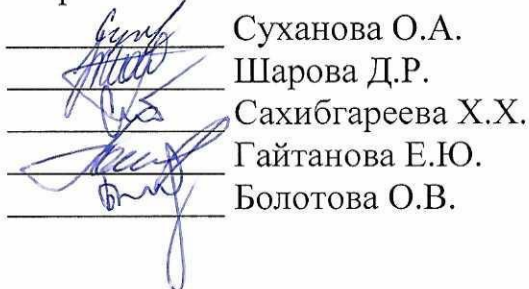 Суханова О.А.
Шарова Д.Р.
Сахибгареева Х.Х.
Гайтанова Е.Ю.
Болотова О.В.